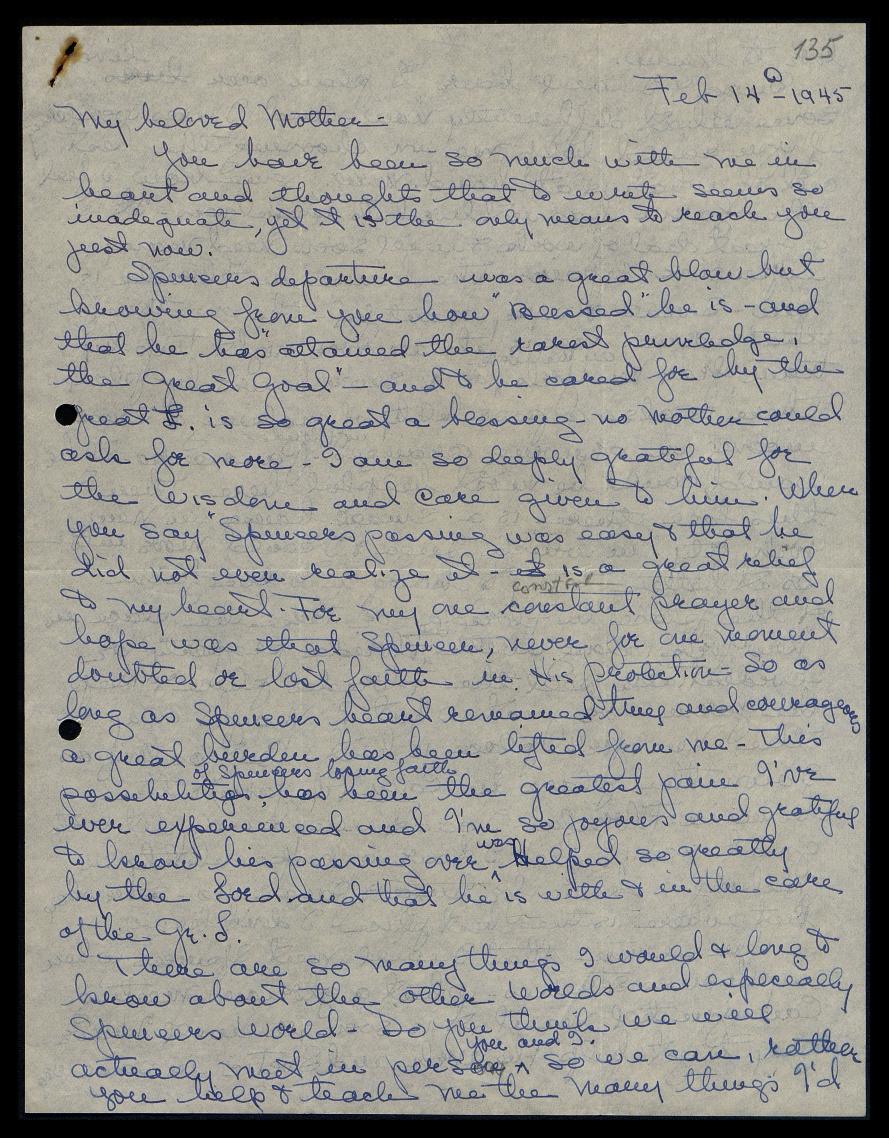 135
Feb 14th - 1945
My beloved Mother -
You have been so much with me in
heart and thoughts that to write seems so
inadequate, yet it is the only means to reach you
just now.
Spencers departure was a great blow but
knowing from you how "Blessed" he is - and
that he has "attained the rarest priviledge,
the Great Goal" - and to be cared for by the
Great L. is so great a blessing - no Mother could
ask for more - I am so deeply grateful for
the wisdom and care given to him. When
you say "Spencers passing was easy & that he
did not even realize it - it is a great relief
constant
to my heart. For my one constant prayer and
hope was that Spencer, never for one moment
doubted or lost faith in His protection - So as
long as Spencers heart remained true and courageous
a great burden has been lifted from me - This
of Spencers losing faith
possibility, has been the greatest pain I've
ever experienced and I'm so joyous and grateful
was
to know his passing over helped so greatly
by the Lord and that he is with & in the care
of the Gr. L.
There are so many things I would & long to
know about the other worlds and especially
Spencers world - Do you think we will
you and I.
actually meet in person so we can, rather
you help & teach me the many things I'd